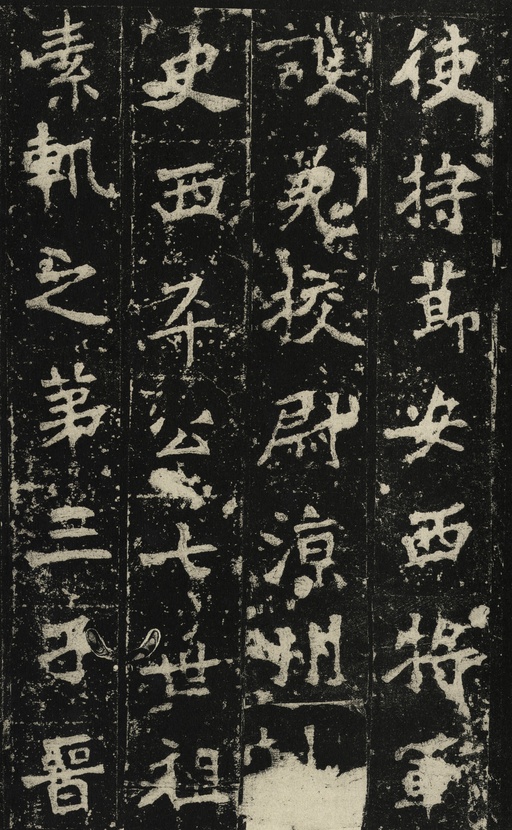 使持節安西將軍
護羌挍尉涼州
史西平公七世祖
素軌之第三子晉